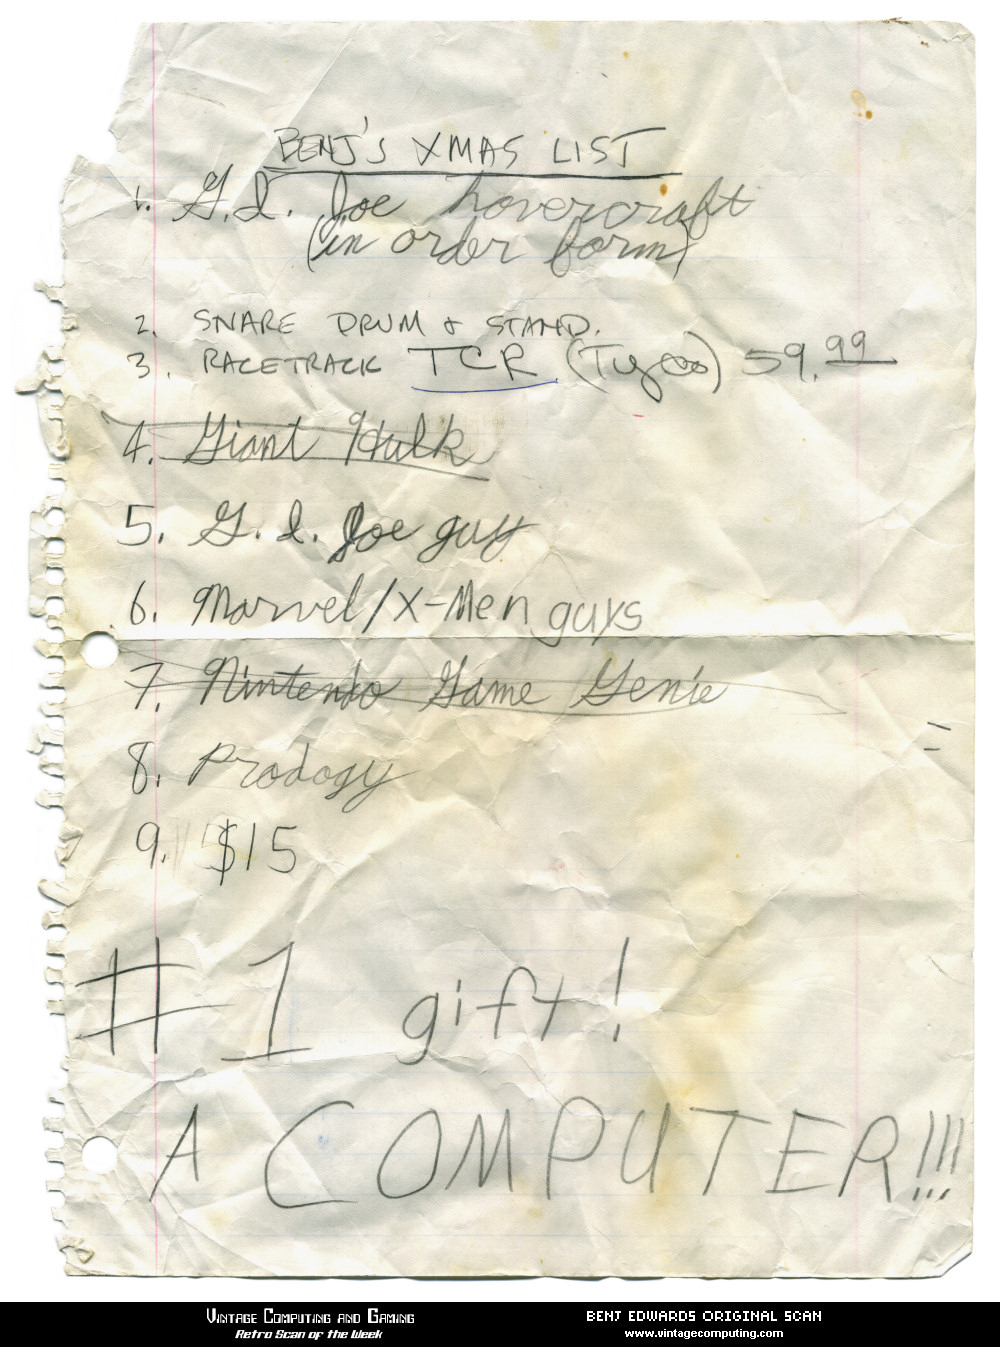 BENJ'S XMAS LIST
1. G.I. Joe hovercraft
(in order form)
2. SNARE DRUM & STAND.
3. RACETRACK TCR (Tyco) 59.99
4. Giant Hulk
5. G.I. Joe guy
6. Marvel/X-Men guys
7. Nintendo Game Genie
8. Prodogy
9. $15
#1 gift!
A COMPUTER!!!
VINTAGE COMPUTING AND GAMING
Retro Scan of the Week
BENJ EDWARDS ORIGINAL SCAN
www.vintagecomputing.com